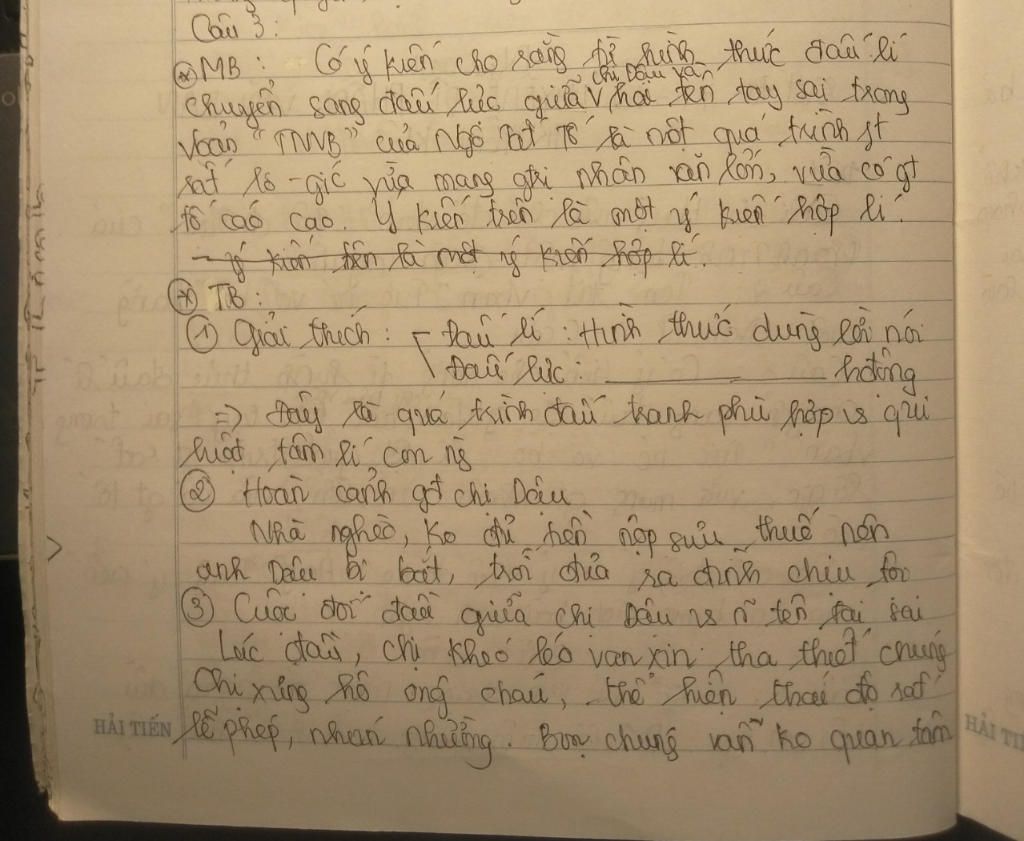 Câu 3:
* MB: Có ý kiến cho rằng từ hình thức đấu lí
chị Dậu và
chuyển sang đấu lực giữa V hai tên tay sai trong
VB "TNVB" của Ngô Tất Tố là một quá trình
rất lô-gíc vừa mang gtri nhân văn lớn, vừa có gt
tố cáo cao. Ý kiến trên là một ý kiến hợp lí.
- ý kiến trên là một ý kiến hợp lí.
* TB:
① Giải thích: Đấu lí: Hình thức dùng lời nói
Đấu lực: ________ hđộng
=> Đây là quá trình đấu tranh phù hợp vs qui
luật tâm lí con ng
② Hoàn cảnh gđ chị Dậu
Nhà nghèo, ko đủ tiền nộp sưu thuế nên
anh Dậu bị bắt, trói đưa ra đình chịu tội
③ Cuộc đối đầu giữa chị Dậu vs ~ tên tai sai
Lúc đầu, chị khéo léo van xin tha thiết chúng
Chị xưng hô ông cháu, thể hiện thái độ rất
lễ phép, nhún nhường. Bọn chúng vẫn ko quan tâm
HẢI TIẾN
HẢI TI